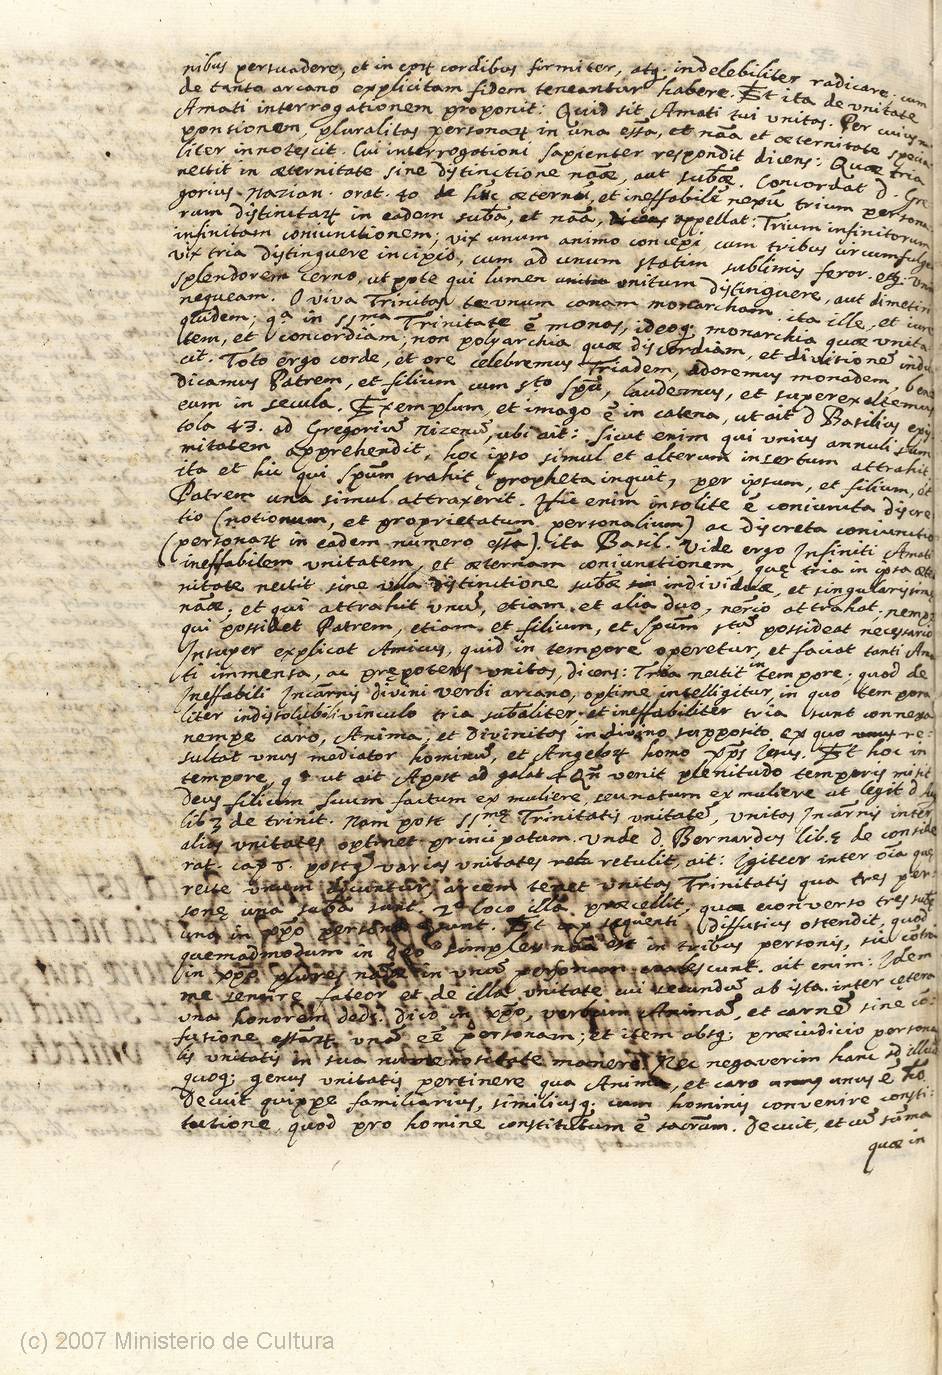 nibus persuadere, et in eorum cordibus firmiter, atq; indelebiliter radicare. cum
de tanto arcano explicitam fidem teneantur habere. Et ita de unitate
Amati interrogationem proponit: Quid sit Amati tui unitas. Per cuius
ponsionem, pluralitas personarum in una essa, et nãa et æternitate specia
liter innotescit. Cui interrogationi sapienter respondit dicens: Quæ tria
nectit in æternitate sine distinctione nãæ, aut subæ. Concordat d. Gre
gorius Nazian. orat. 40 hũc æternũ, et ineffabilẽ nexũ trium persona
rum distinctarum in eadem suba, et nãa, appellat: Trium infinitorum
infinitam coniunctionem; vix unum animo concepi, cum tribus circumfulge
vix tria distinguere incipio, cum ad unum statim sublimis feror. etq; uni
splendorem cerno, ut pote qui lumen unitum distinguere, aut dimetiri
nequeam. O viva Trinitas te unum canam monarcham. ita ille, et iure
quidem; qa in SSma Trinitate ẽ monas, ideoq; monarchia quæ unita
tem, et concordiam, non polyarchia quæ discordiam, et divitionẽ indu
cit. Toto ergo corde, et ore celebremus Triadem, adoremus monadem, bene
dicamus Patrem, et filium cum sto Spũ, laudemus, et superexaltemus
eum in secula. Exemplum, et imago ẽ in catena, ut ait d Basilius epis
tola 43. ad Gregoriũ Nizenũ, ubi ait: sicut enim qui unius annuli sum
mitatem apprehendit, hoc ipso simul et alterum insertum attrahit
ita et hic qui Spum trahit, propheta inquit, per ipsum, et filium, et
Patrem una simul attraxerit. Hic enim insolite ẽ coniuncta discre
tio (notionum, et proprietatum personalium) ac discreta coniunctio
(personarum in eadem numero essa). ita Basil. Vide ergo Infiniti Amati
ineffabilem unitatem, et æternam coniunctionem, quę tria in ipsa æte
nitate nectit sine ulla distinctione subæ individuæ, et singularissimæ
nãæ; et qui attrahit unũ, etiam et alia duo, nerio attrahat, nempe
qui possidet Patrem, etiam et filium, et Spũm stũ possideat necessario
Insuper explicat Amicus, quid in tempore operetur, et faciat tanti Ama
ti immensa, ac prępotens unitas, dicens: Tria nectit in tempore; quod de
Ineffabili Incarnis divini verbi arcano, optime intelligitur, in quo tempora
liter indissolubili vinculo tria subaliter et ineffabiliter tria sunt connexa
nempe caro, Anima, et Divinitas in divino supposito, ex quo re:
sultat unus mediator hominũ, et Angelorum homo Xps Iesus. Et hoc in
tempore, ut ait Apost ad galat 4 Qñ venit plenitudo temporis misit
Deus filium suum factum ex muliere, seu natum ex muliere ut legit d
lib 3 de trinit. Nam post SSmę Trinitatis unitatẽ, unitas Incarnis inter
alias unitates optinet principatum. unde d. Bernardus lib. 5 de conside
rat. cap 8. postq̃ varias unitates retulit, ait: Igitur inter oĩa quę
recte unum dicuntur, arcem tenet unitas Trinitatis qua tres per
sonę una suba sunt. 2º loco illa præcellit, qua econverso tres subę
una in Xpo persona sunt. Et cap sequenti diffusius ostendit, quod
quemadmodum in Deo simplex nãa est in tribus personis, sic contra
in Xpo plures nãæ in unã personam coalescunt. ait enim: Idem
me sentire fateor et de illa unitate cui secundũ ab ista inter ceteras
una honorem dedi. Dico in Xpo, verbum Animã, et carnẽ sine co:
fusione essarum, unã eẽ personam; et item absq; præiudicio persona
lis unitatis in sua numerositate manere. Nec negaverim hanc ad illud
quoq; genus unitatis pertinere qua Anima, et caro unus ẽ ho.
Decuit quippe familiarius, similiusq; cum hominis convenire consti:
tutione, quod pro homine constitutum ẽ sacrãm. Decuit, et cũ summa
quæ in
(c) 2007 Ministerio de Cultura